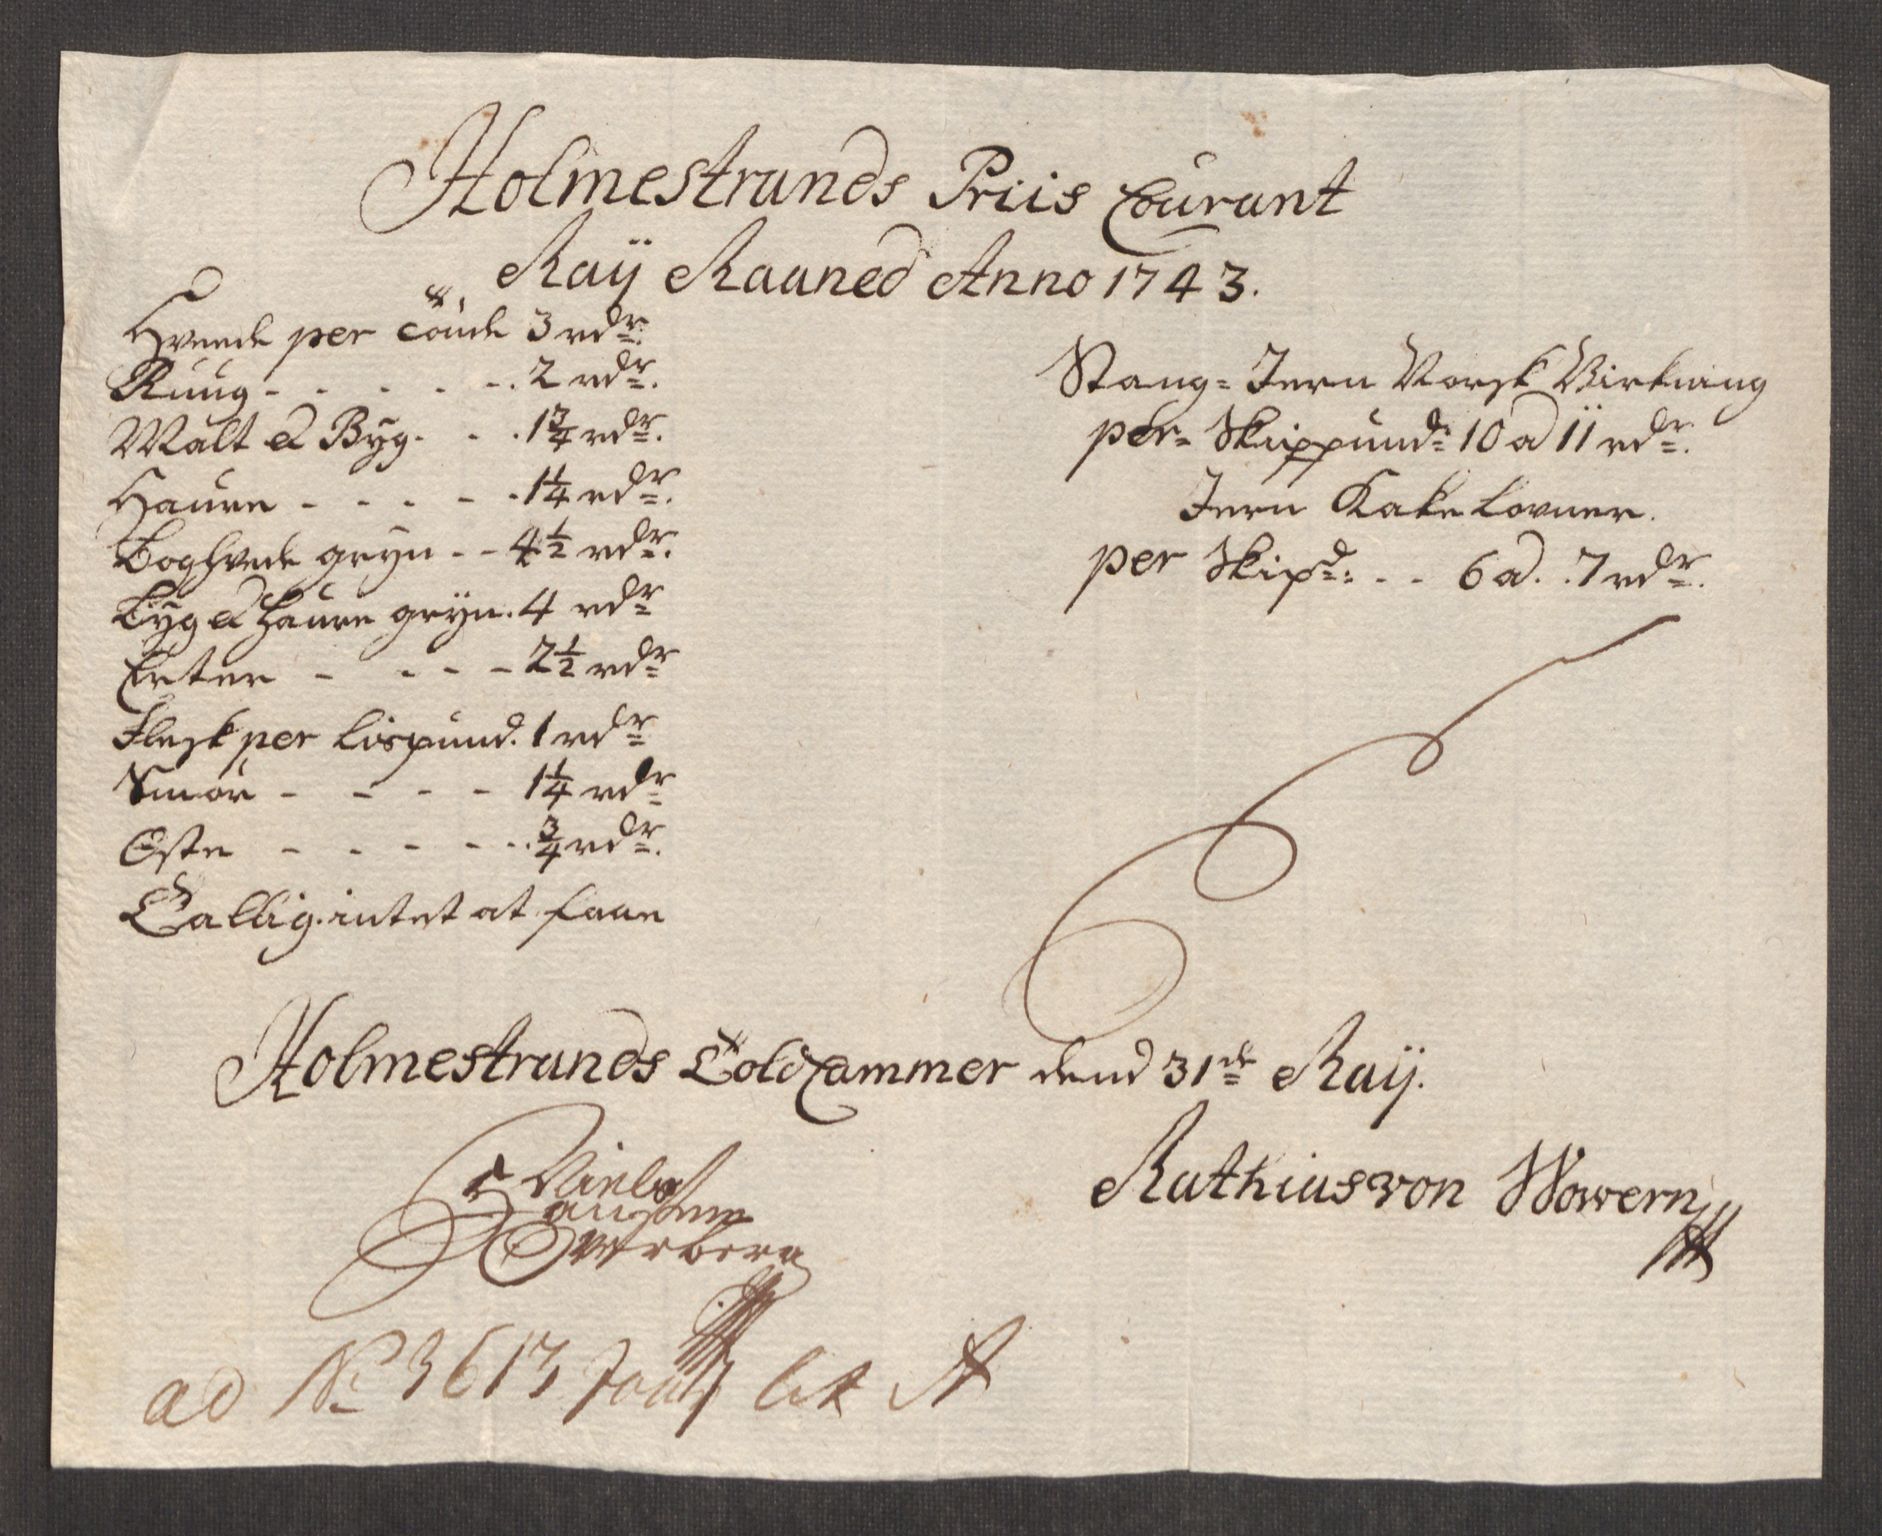 Holmestrands Priis Courant
Maÿ Maaned Anno 1743.
Hveede per Tönde 3 rdr.
Ruug - - - - - 2 rdr.
Malt & Byg - - 1 3/4 rdr.
Haure - - - - - 1 1/4 rdr.
Boghvede gryn - - 4 1/2 rdr.
Byg & Haure grÿn. 4 rdr
Erter - - - - 2 1/2 rdr
Flesk per Lispund. 1 rdr
Smör - - - - 1 1/4 rdr
Oste - - - - - 3/4 rdr.
Tallig. intet at faae
Stang- Jern Norsk Virkning
per Skippund: 10 a 11 rdr.
Jern Kakelovner.
per Skipd: - - 6 a. 7 rdr.
Holmestrands Toldcammer dend 31de Maÿ.
Niels
Hansen
Overberg
Mathias von Wowern
ad No 3613 Lit A